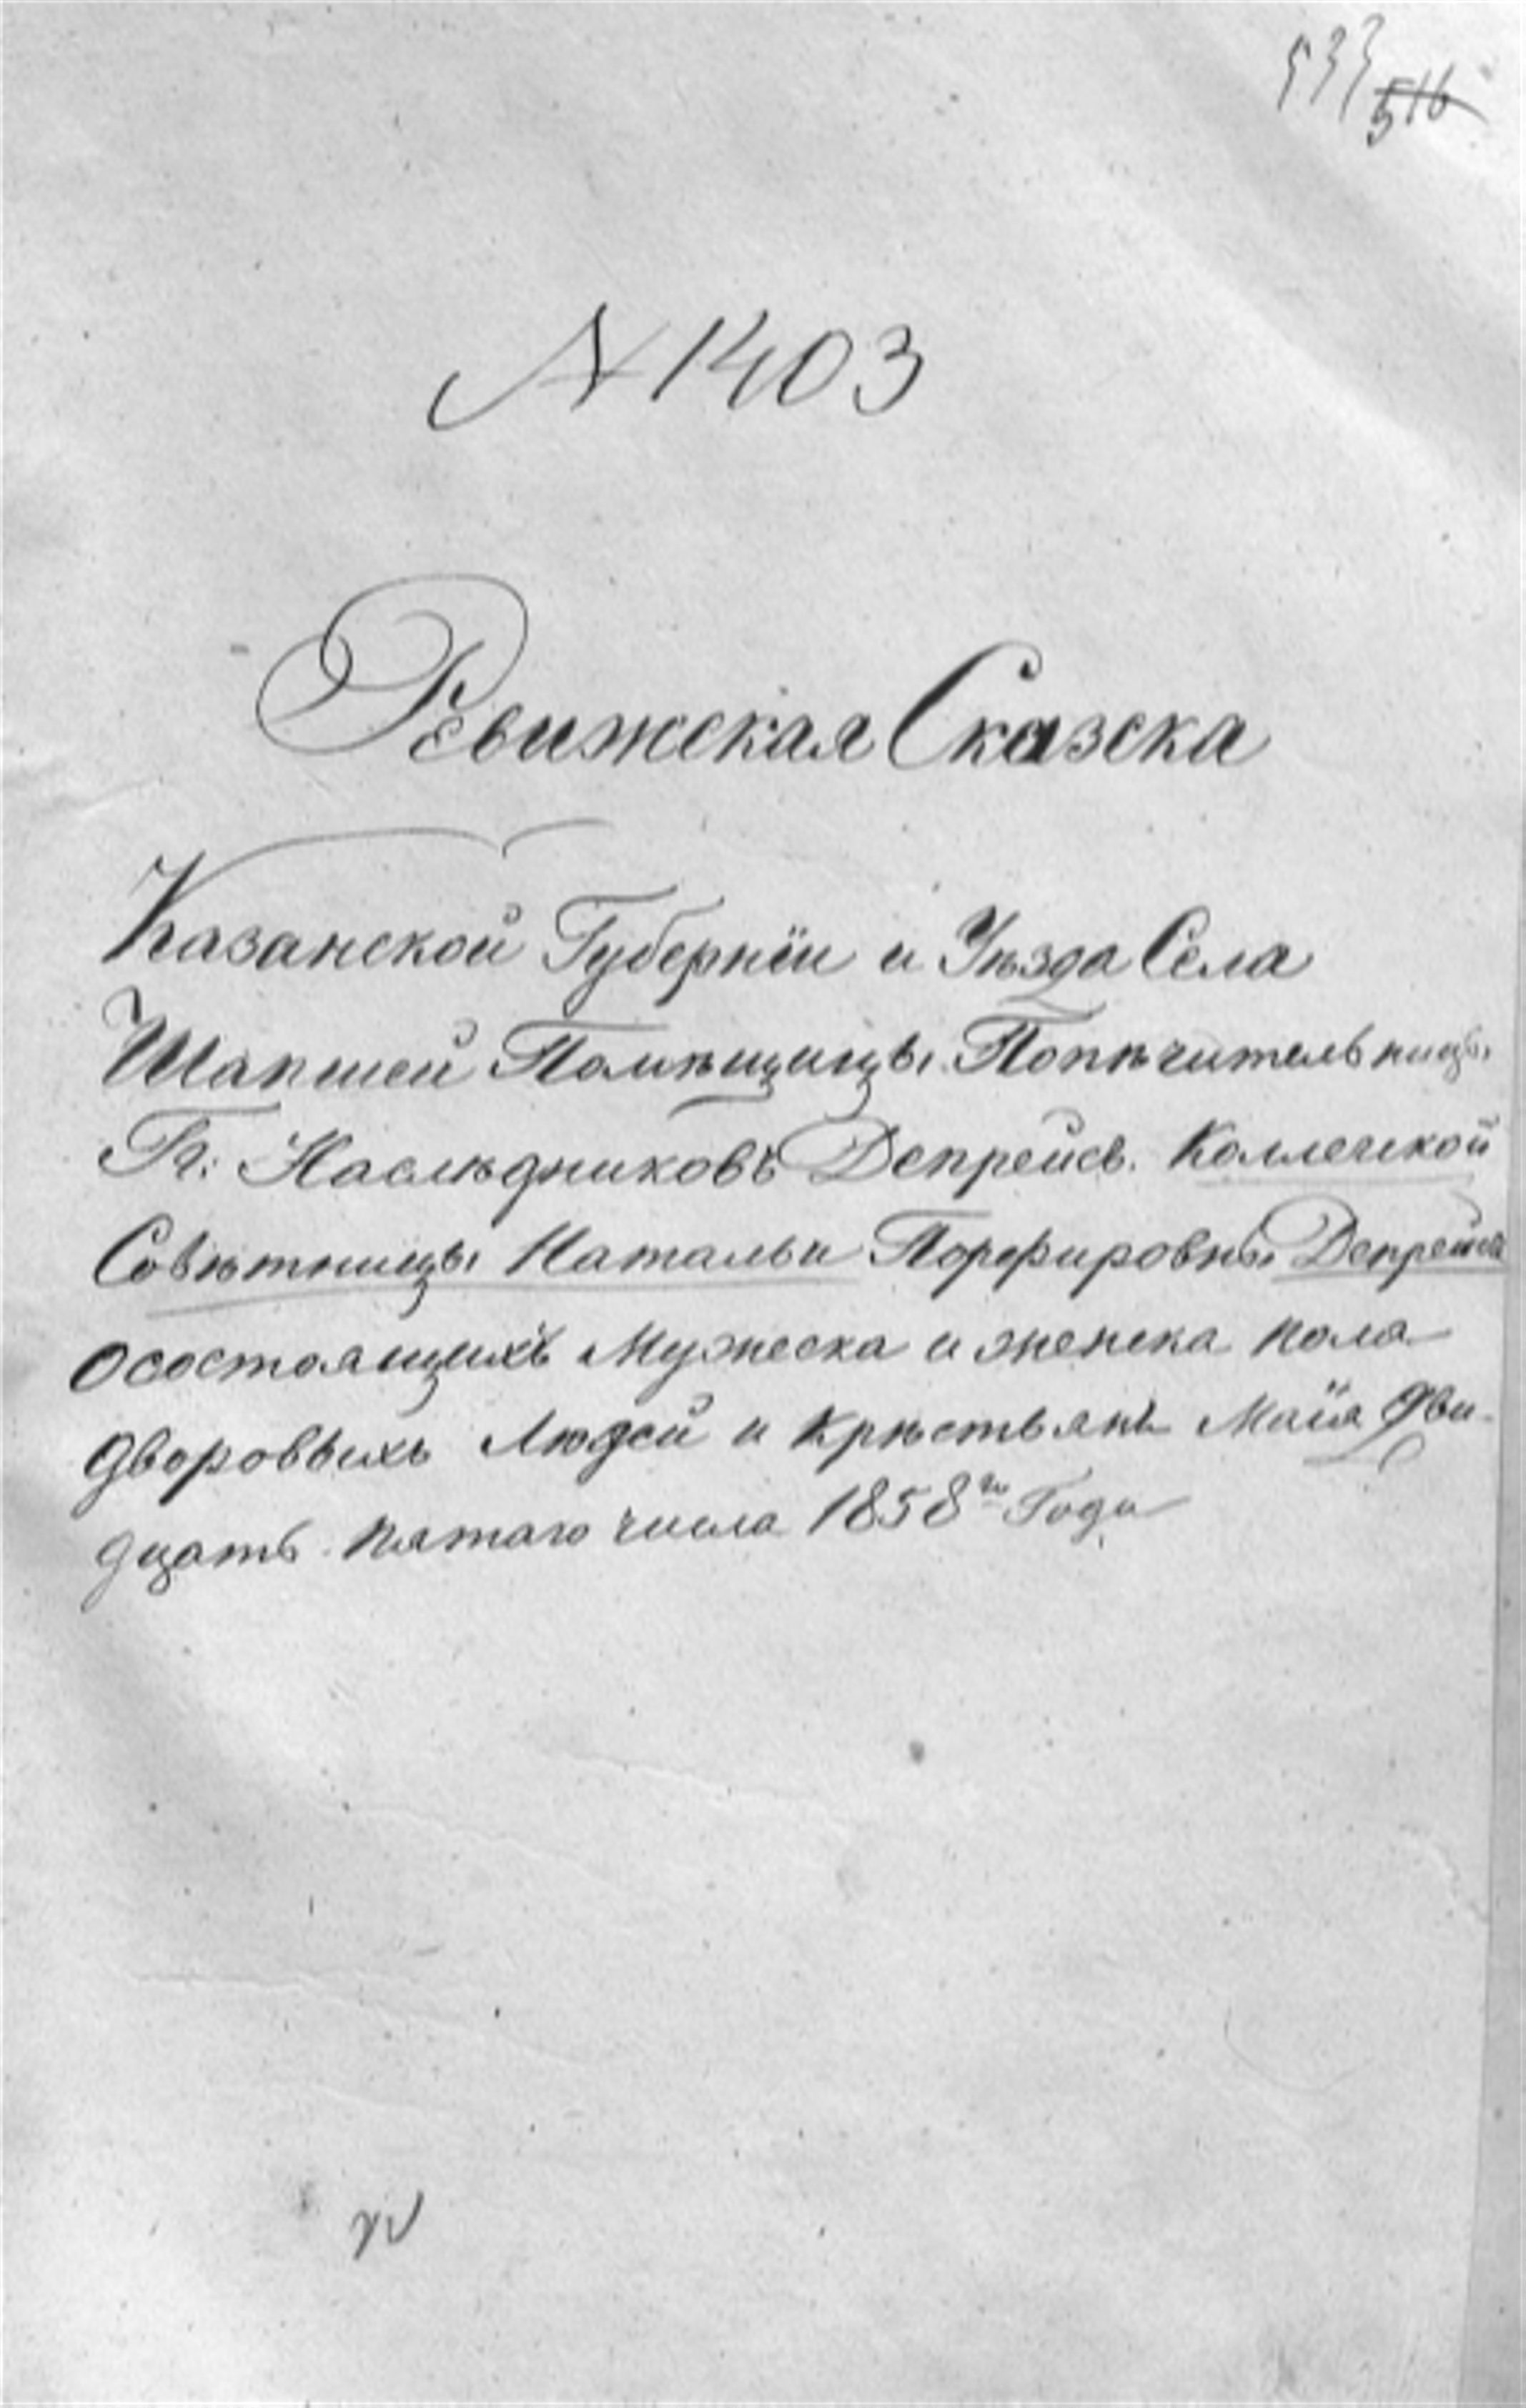 533 516
№ 1403
Ревижская Сказска
Казанской Губернïи и Уѣзда Села
Шапшей Помѣщицы Попѣчительницы
Гг: Наслѣдниковъ Депрейсъ. Коллечской
Совѣтницы Натальи Порфировны Депрейсъ
Осостоящихъ Мужеска и женска пола
Дворовыхъ Людей и Крѣстьянъ Маïя Два-
дцать Пятаго числа 1858го Года